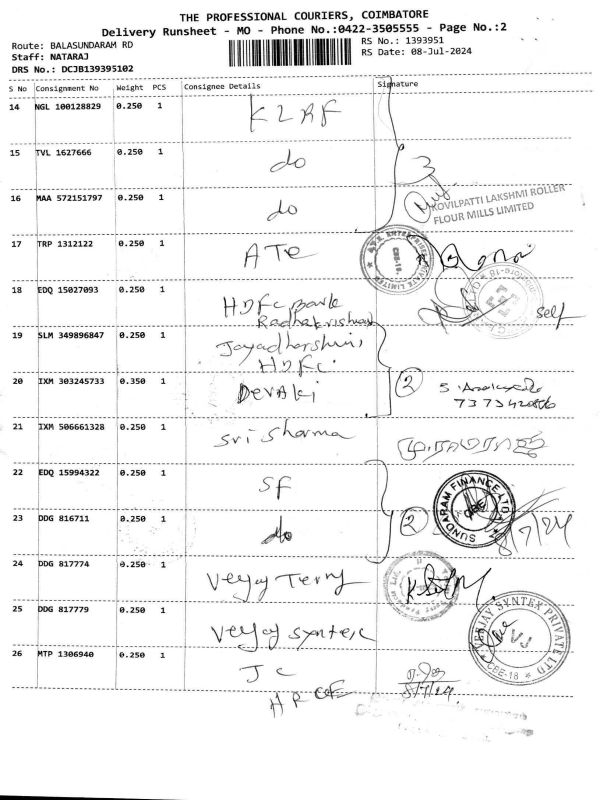 THE PROFESSIONAL COURIERS, COIMBATORE
Delivery Runsheet - MO - Phone No.:0422-3505555 - Page No.:2
Route: BALASUNDARAM RD
RS No.: 1393951
Staff: NATARAJ
RS Date: 08-Jul-2024
DRS No.: DCJB139395102
S No Consignment No Weight PCS Consignee Details Signature
14 NGL 100128829 0.250 1 KLRF
15 TVL 1627666 0.250 1 do
3
16 MAA 572151797 0.250 1 do
KOVILPATTI LAKSHMI ROLLER
FLOUR MILLS LIMITED
17 TRP 1312122 0.250 1 ATE
18 EDQ 15027093 0.250 1 HDFC Bank
Radhakrishnan
self
19 SLM 349896847 0.250 1 Jayadharshini,
HDFC.
20 IXM 303245733 0.350 1 Devaki
2
21 IXM 506661328 0.250 1 Sri Sharma
22 EDQ 15994322 0.250 1 SF
23 DDG 816711 0.250 1 do
2 SUNDARAM FINANCE LTD CBE 8/7/24
24 DDG 817774 0.250 1 Veejay Terry
25 DDG 817779 0.250 1 Veejay syntex
VEEJAY SYNTEX PRIVATE LTD VJ CBE-18
26 MTP 1306940 0.250 1 JC
8/7/24
HRCE